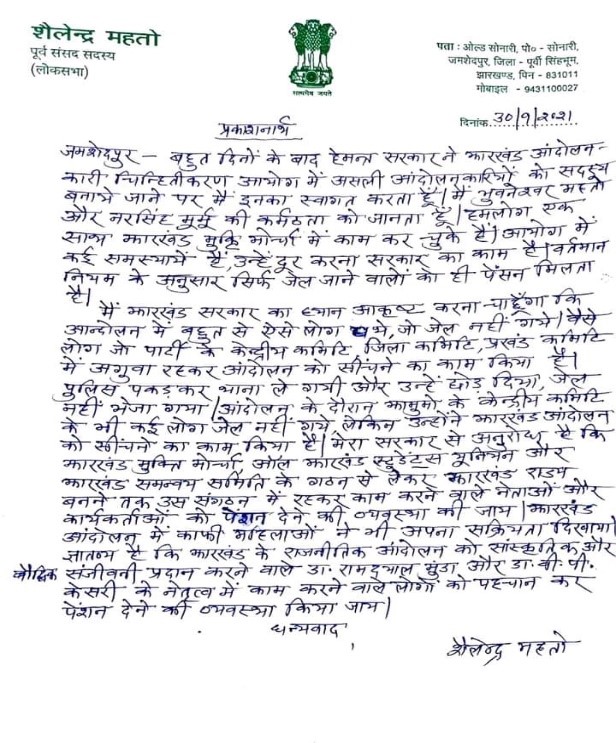 शैलेन्द्र महतो
पूर्व संसद सदस्य
(लोकसभा)
सत्यमेव जयते
पता : ओल्ड सोनारी, पो० - सोनारी,
जमशेदपुर, जिला - पूर्वी सिंहभूम,
झारखण्ड, पिन - 831011
मोबाइल - 9431100027
दिनांक 30/9/2021
प्रकाशनार्थ
जमशेदपुर – बहुत दिनों के बाद हेमन्त सरकार ने झारखंड आंदोलन-
कारी चिन्हितीकरण आयोग में असली आंदोलनकारियों को सदस्य
बनाये जाने पर मैं इनका स्वागत करता हूँ। मैं भुवनेश्वर महतो
और नरसिंह मुर्मू की कर्मठता को जानता हूँ। हमलोग एक
साथ झारखंड मुक्ति मोर्चा में काम कर चुके हैं। आयोग में
कई समस्याये हैं, उन्हें दूर करना सरकार का काम है। वर्तमान
नियम के अनुसार सिर्फ जेल जाने वालों को ही पेंसन मिलता
है।
मैं झारखंड सरकार का ध्यान आकृष्ट करना चाहूँगा कि
आन्दोलन में बहुत से ऐसे लोग थे, जो जेल नहीं गये। वैसे
लोग जो पार्टी के केन्द्रीय कमिटि, जिला कमिटि, प्रखंड कमिटि
में अगुवा रहकर आंदोलन को सींचने का काम किया है।
पुलिस पकड़कर थाना ले गयी और उन्हें छोड़ दिया, जेल
नहीं भेजा गया। आंदोलन के दौरान झामुमो के केन्द्रीय कमिटि
के भी कई लोग जेल नहीं गये, लेकिन उन्होंने झारखंड आंदोलन
को सींचने का काम किया है। मेरा सरकार से अनुरोध है कि
झारखंड मुक्ति मोर्चा, ऑल झारखंड स्टूडेंट्स यूनियन और
झारखंड समन्वय समिति के गठन से लेकर झारखंड राज्य
बनने तक उस संगठन में रहकर काम करने वाले नेताओं और
कार्यकर्ताओं को पेंशन देने की व्यवस्था की जाय। झारखंड
आंदोलन में काफी महिलाओं ने भी अपना सक्रियता दिखाया।
ज्ञातव्य है कि झारखंड के राजनीतिक आंदोलन को सांस्कृतिक और
बौद्धिक संजीवनी प्रदान करने वाले डा. रामदयाल मुंडा और डा. बी. पी.
केसरी के नेतृत्व में काम करने वाले लोगों को पहचान कर
पेंशन देने की व्यवस्था किया जाय।
धन्यवाद
शैलेन्द्र महतो